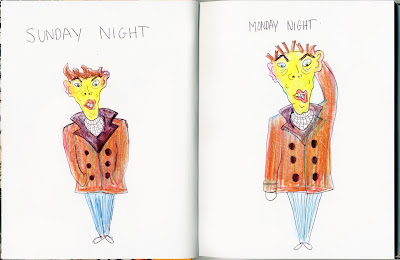 SUNDAY NIGHT
MONDAY NIGHT.